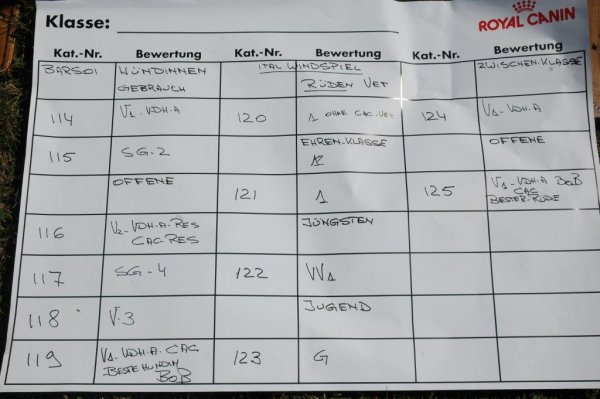 Klasse:
ROYAL CANIN
Kat.-Nr. Bewertung Kat.-Nr. Bewertung Kat.-Nr. Bewertung
BARSOI HÜNDINNEN GEBRAUCH ITAL WINDSPIEL RÜDEN VET ZWISCHEN.KLASSE
114 V1-VDH-A 120 1 OHNE CAC-VET 124 V1-VDH-A
115 SG-2 EHREN-KLASSE OFFENE
OFFENE 121 1 125 V1-VDH-A BOB CAC BESTER-RÜDE
116 V2-VDH-A-RES CAC-RES JÜNGSTEN
117 SG-4 122 VV1
118 V-3 JUGEND
119 V1-VDH-A-CAC BESTE HÜNDIN BOB 123 G